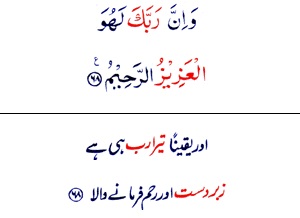 وَاِنَّ رَبَّكَ لَهُوَ
الْعَزِيْزُ الرَّحِيْمُ ﴿۶۸﴾ ع
اور یقیناً تیرا رب ہی ہے
زبردست اور رحم فرمانے والا ﴿۶۸﴾